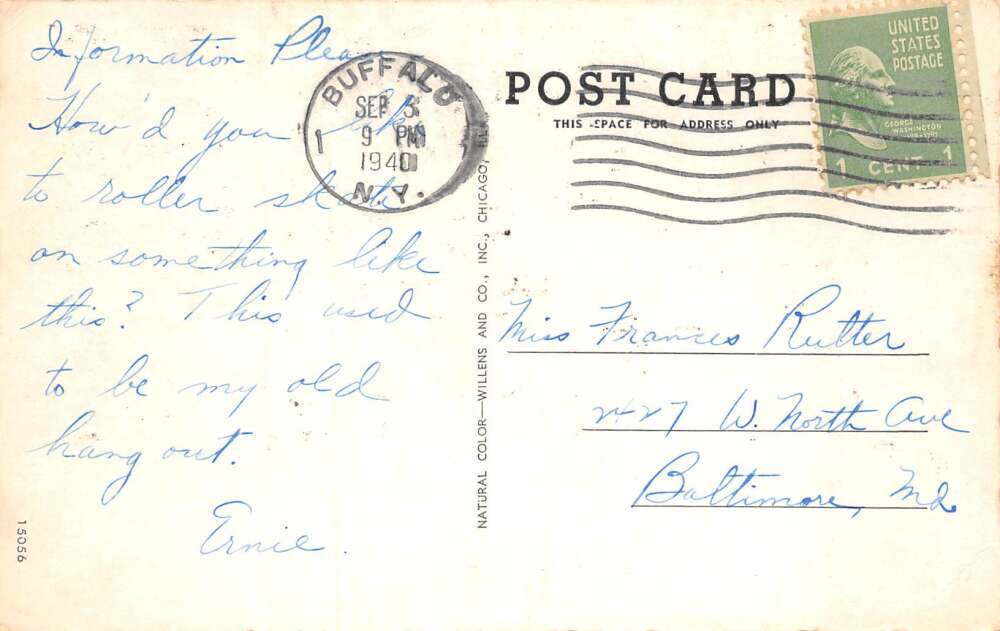 Information Please
How'd you like
to roller skate
on something like
this? This used
to be my old
hang out.
Ernie.
15056
BUFFALO
SEP 3
9 PM
1940
N.Y.
1
NATURAL COLOR—WILLENS AND CO., INC., CHICAGO, ILL.
POST CARD
THIS SPACE FOR ADDRESS ONLY
UNITED
STATES
POSTAGE
GEORGE
WASHINGTON
1 CENT 1
Miss Frances Rutter
2427 W. North Ave
Baltimore, Md.